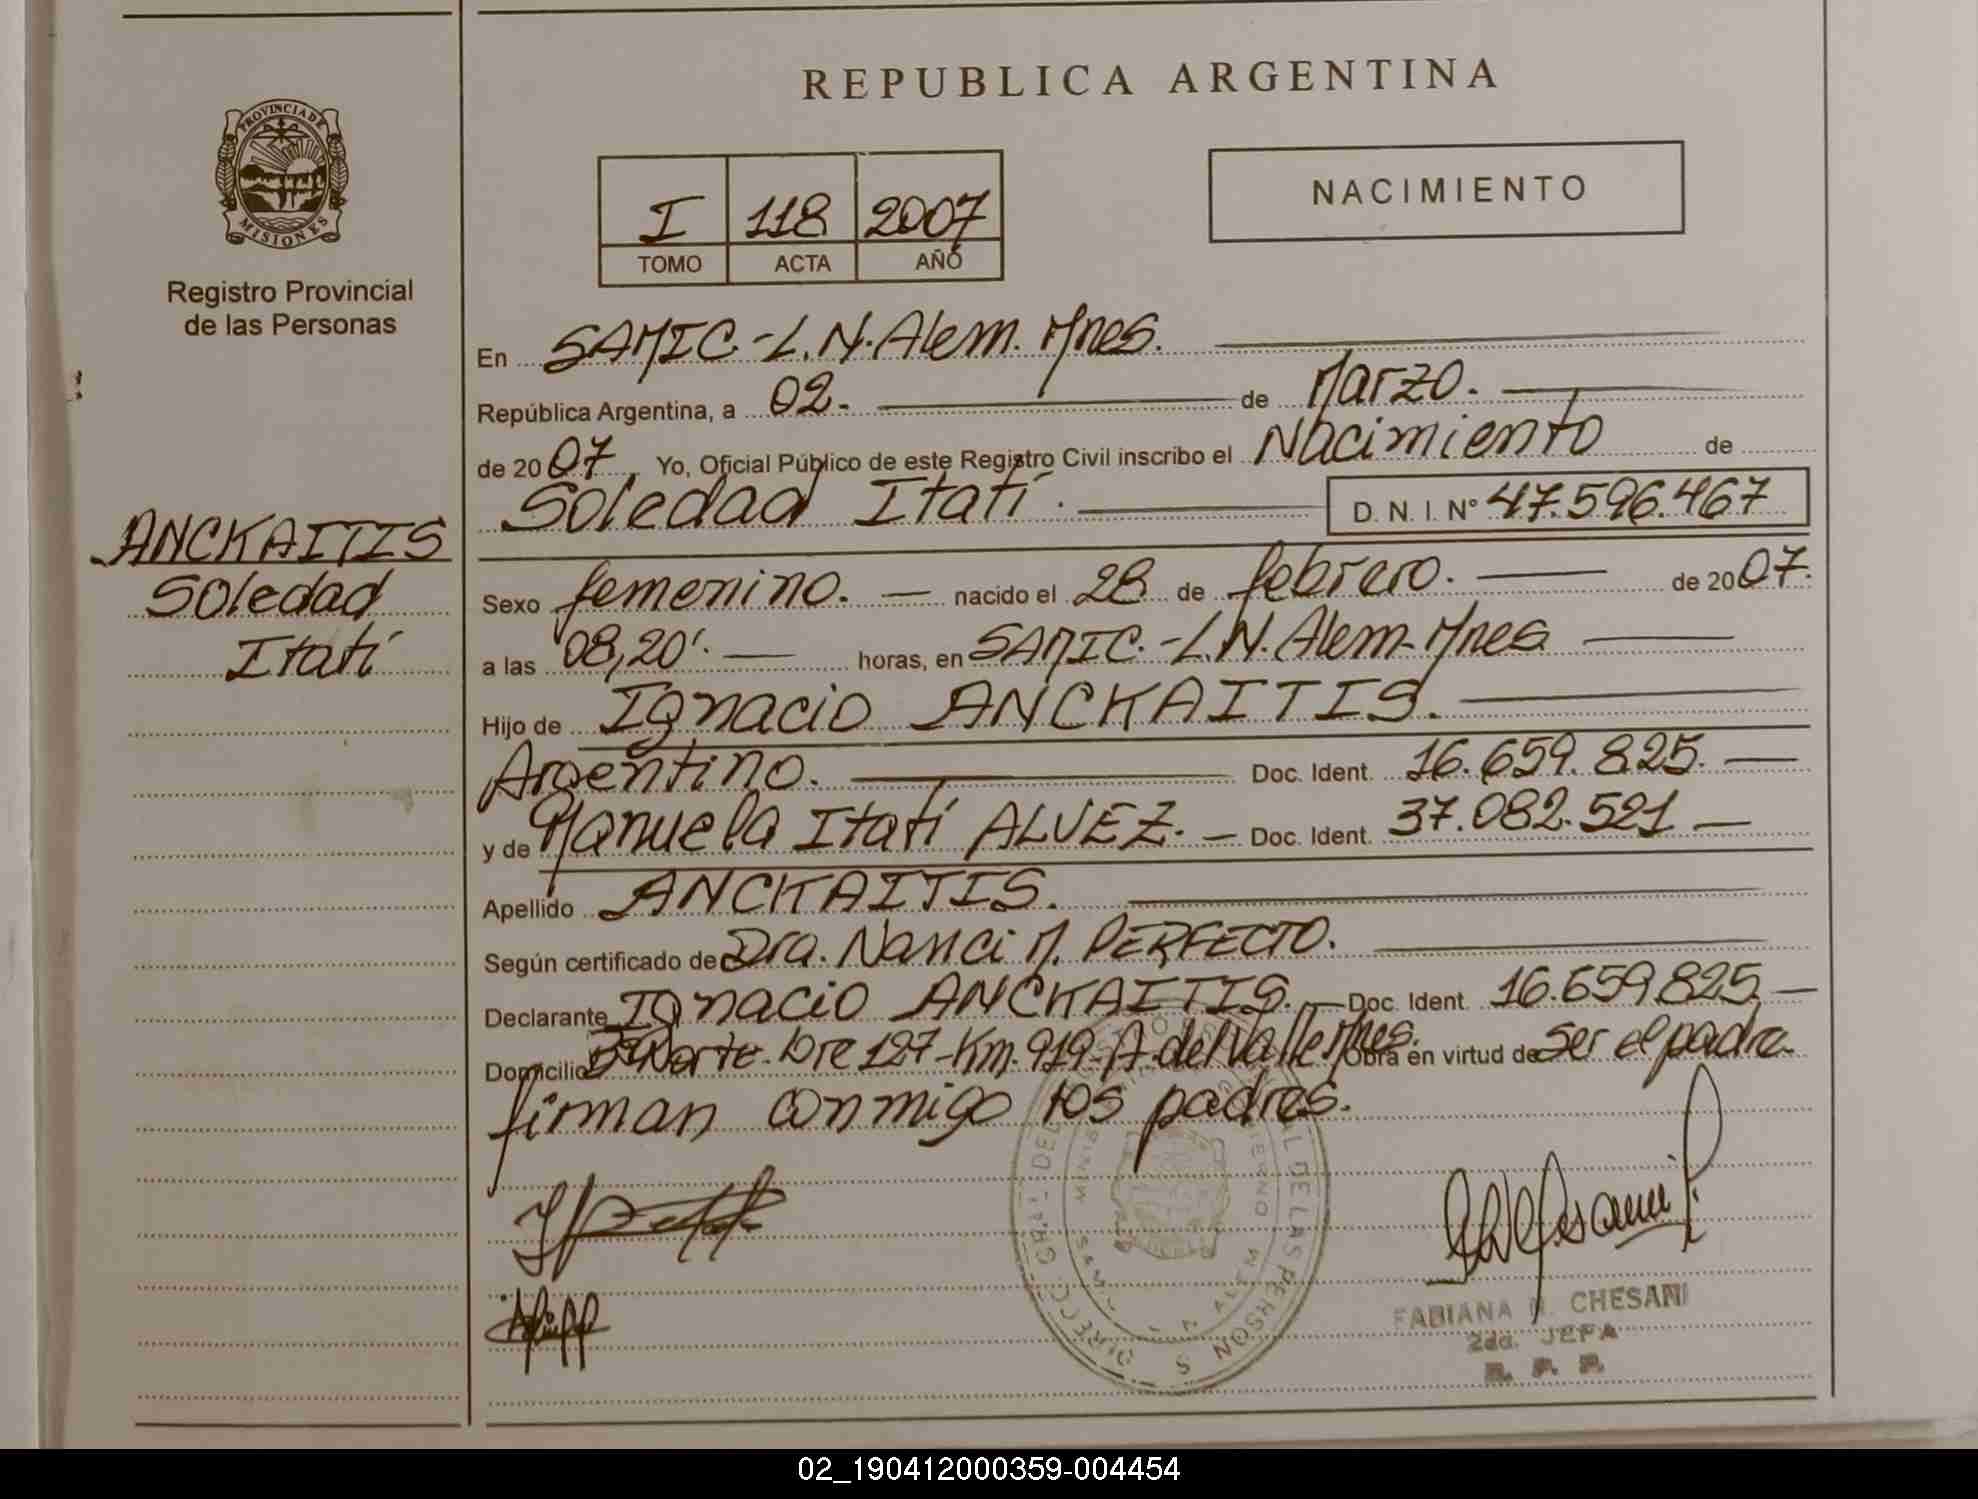 REPUBLICA ARGENTINA
PROVINCIA DE
MISIONES
Registro Provincial
de las Personas
I 118 2007
TOMO ACTA AÑO
NACIMIENTO
ANCKAITIS
Soledad
Itatí
En SAMIC.-L.N.Alem. Mnes.
República Argentina, a 02. de Marzo.
de 2007, Yo, Oficial Público de este Registro Civil inscribo el Nacimiento de
Soledad Itatí. D. N. I. Nº 47.596.467
Sexo femenino. nacido el 28 de febrero. de 2007.
a las 08,20'. horas, en SAMIC.-L.N.Alem-Mnes
Hijo de Ignacio ANCKAITIS.
Argentino. Doc. Ident. 16.659.825.
y de Manuela Itatí ALVEZ. Doc. Ident. 37.082.521
Apellido ANCKAITIS.
Según certificado de Dra. Nanci M. PERFECTO.
Declarante Ignacio ANCKAITIS. Doc. Ident. 16.659.825
Domicilio Norte. Km. 919-A.delValle Mnes. Obra en virtud de ser el padre.
firman conmigo los padres.
FABIANA N. CHESANI
2da. JEFA
R. P. P.
02_190412000359-004454